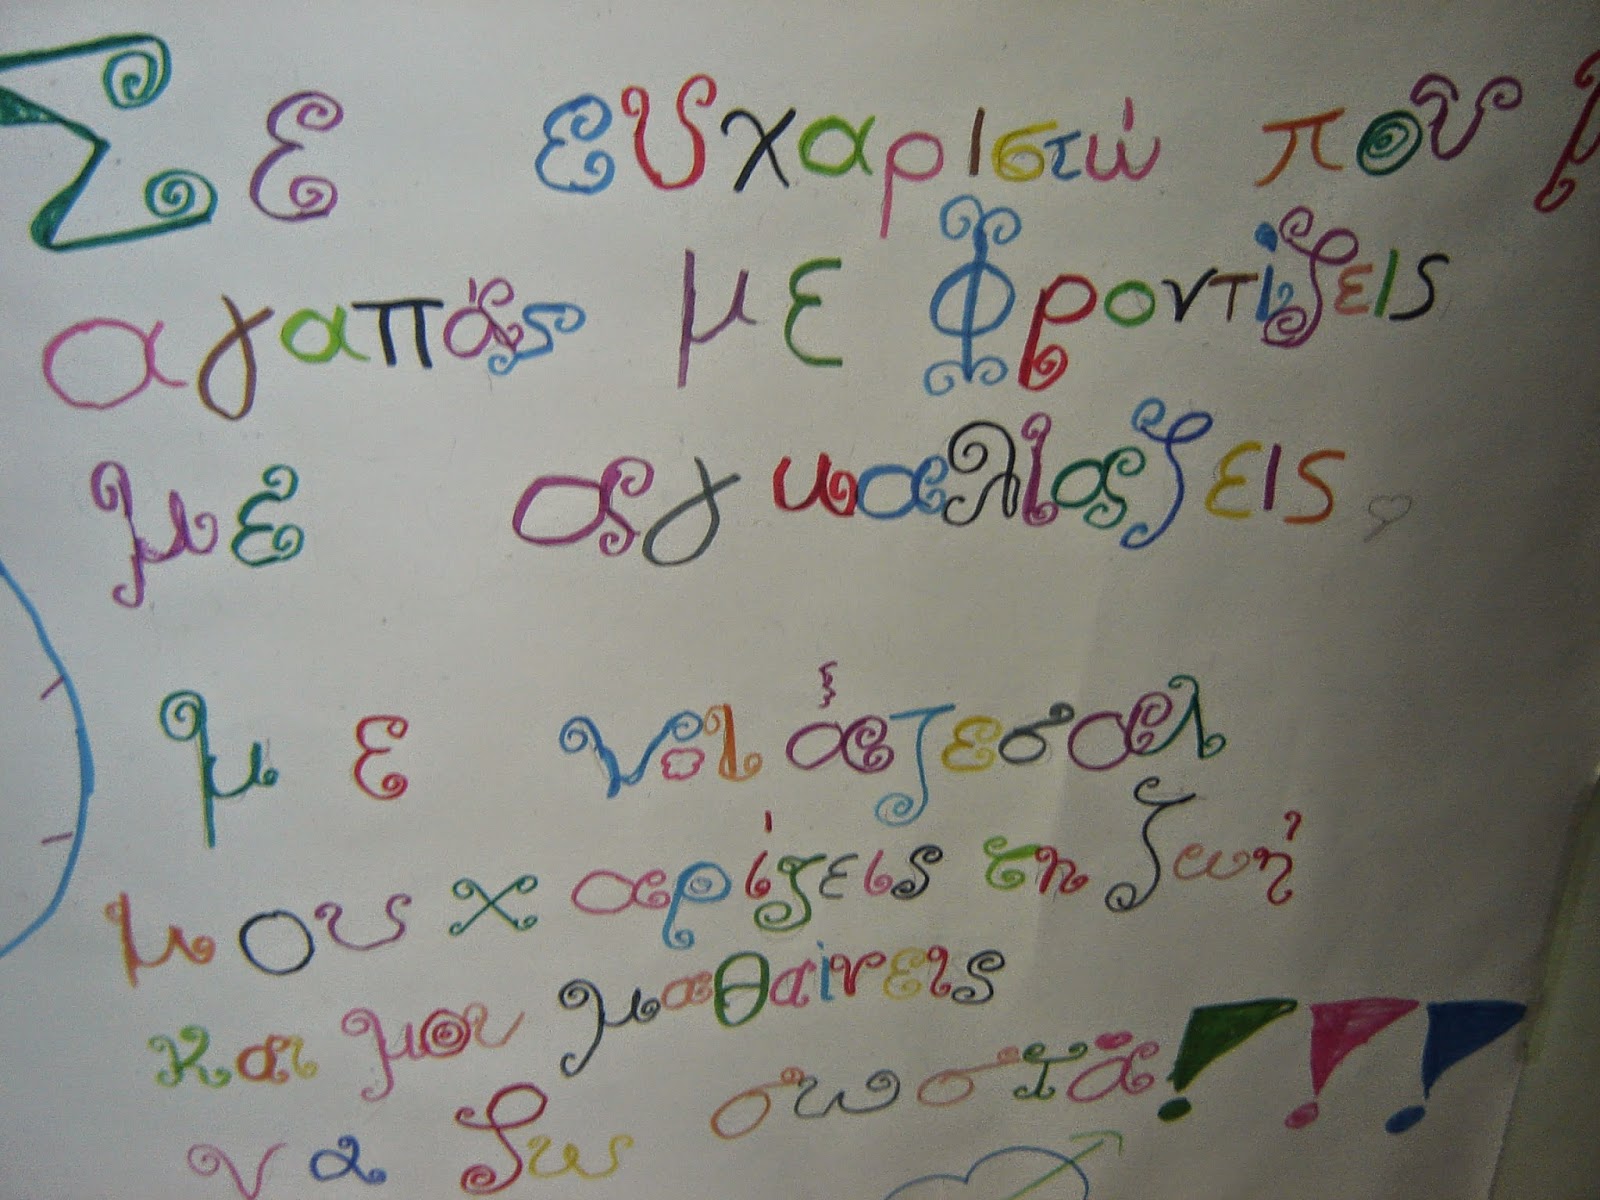 Σε ευχαριστώ που μ
αγαπάς με φροντίζεις
με αγκαλιαζεις
με νοιάζεσαι
μου χαρίζεις τη ζωή
και μου μαθαίνεις
να ζω σωστά!!!